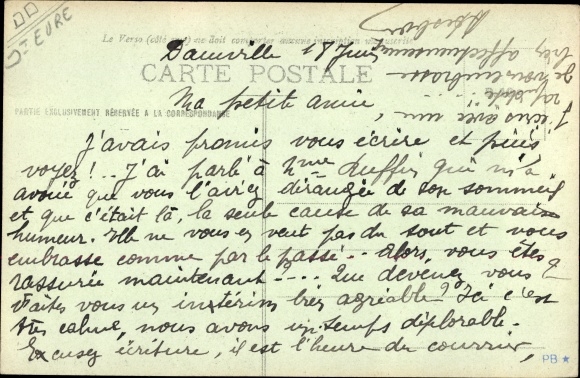 Dt EURE
Le Verso (côté vue) ne doit comporter aucune inscription manuscrite
Damville 18 Juin
CARTE POSTALE
Ma petite amie
PARTIE EXCLUSIVEMENT RÉSERVÉE A LA CORRESPONDANCE
J'avais promis vous écrire et puis
voyez!.. J'ai parlé à Mme Ruffin qui m'a
avoué que vous l'aviez dérangée de son sommeil
et que c'était là, la seule cause de sa mauvaise
humeur. Elle ne vous en veut pas du tout et vous
embrasse comme par le passé.. Alors, vous êtes
rassurée maintenant?... Que devenez vous?
Faites vous un intérim très agréable? Ici c'est
très calme, nous avons un temps déplorable.
Excusez écriture, il est l'heure du courrier,
Je vous embrasse
très affectueusement
PB